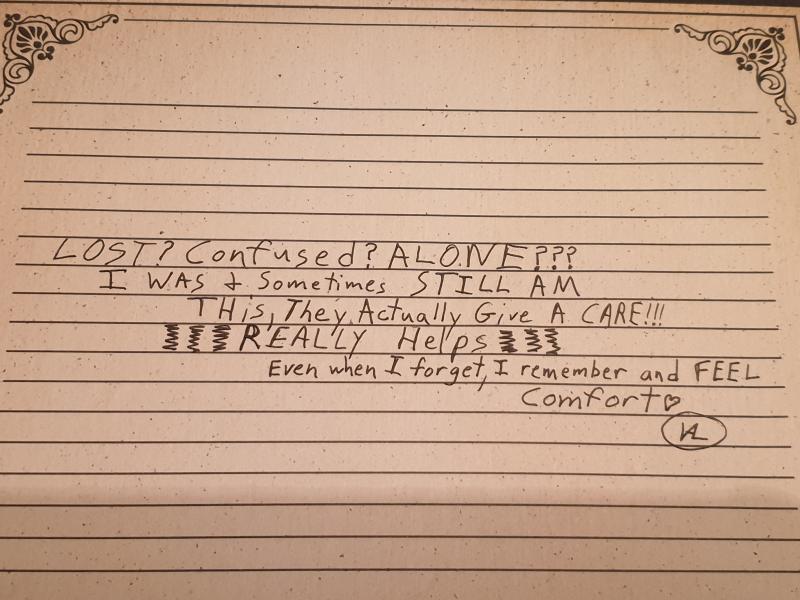 LOST? Confused? ALONE???
I WAS & Sometimes STILL AM
THis, They Actually Give A CARE!!!
REALLY Helps
Even when I forget, I remember and FEEL
Comfort♡